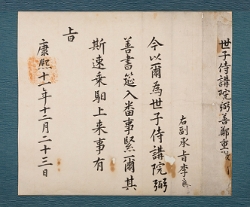 世子侍講院弼善鄭
右副承旨李
今以爾爲世子侍講院弼
善書筵入當事緊爾其
斯速乘馹上來事有
旨
康熙十一年十二月二十三日